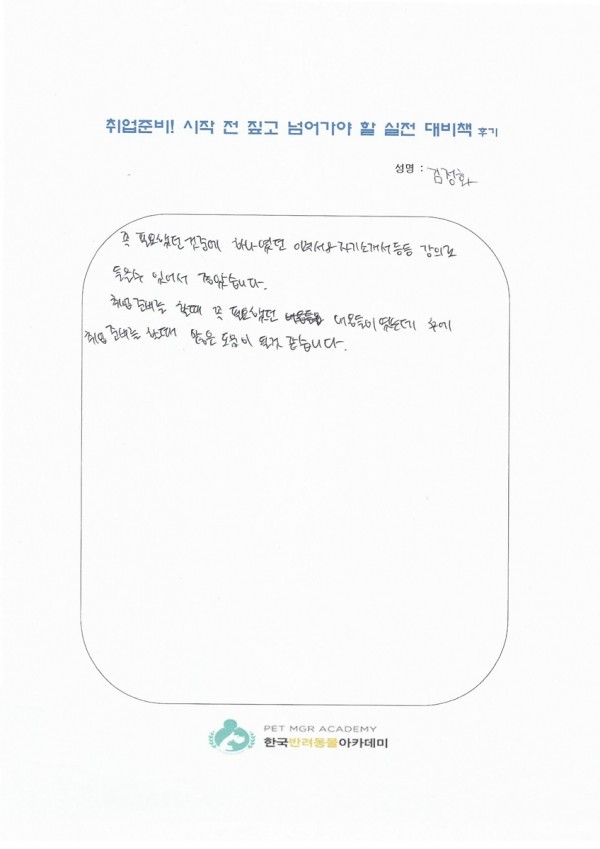 취업준비! 시작 전 짚고 넘어가야 할 실전 대비책 후기
성명 : 김정화
꼭 필요했던 것중에 하나였던 이력서와 자기소개서 등등 강의로
들을수 있어서 좋았습니다.
취업준비를 할때 꼭 필요했던 내용들이 였는데 후에
취업 준비를 할때 많은 도움이 될것 같습니다.
PET MGR ACADEMY
한국반려동물아카데미